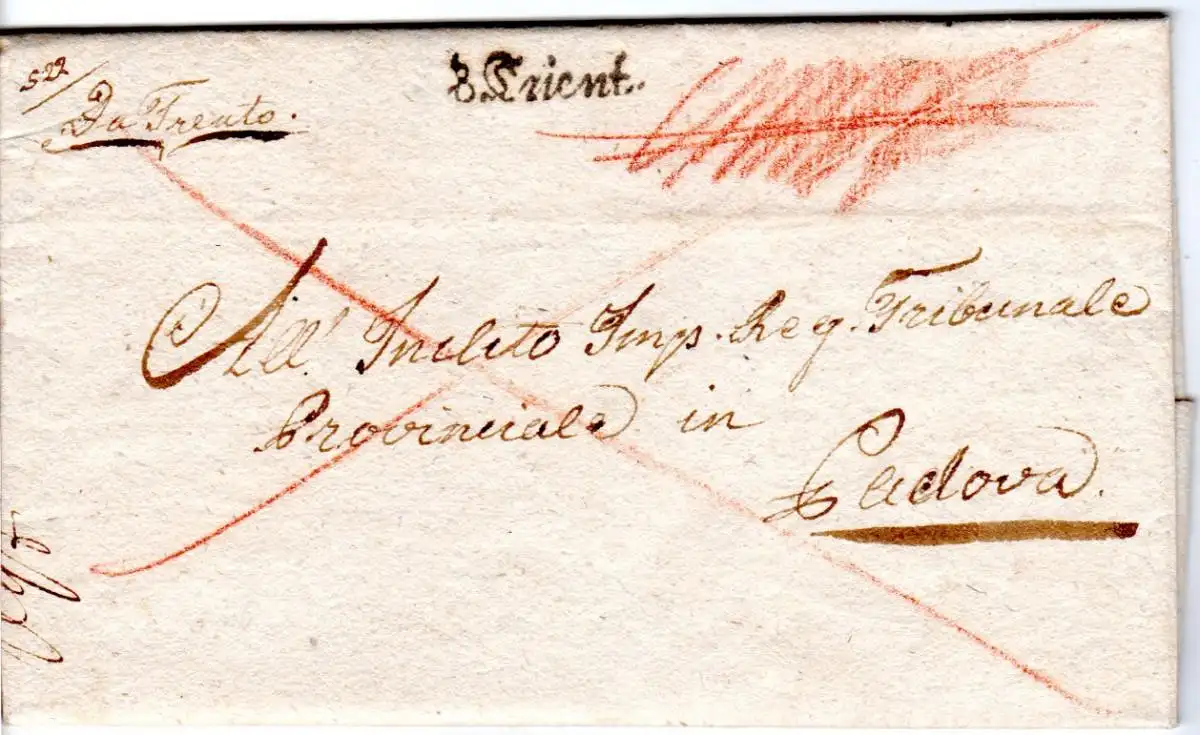 522/
Da Trento.
v. Trient.
All'. Inclito Imp. Reg. Tribunale
Provinciale in
Padova.